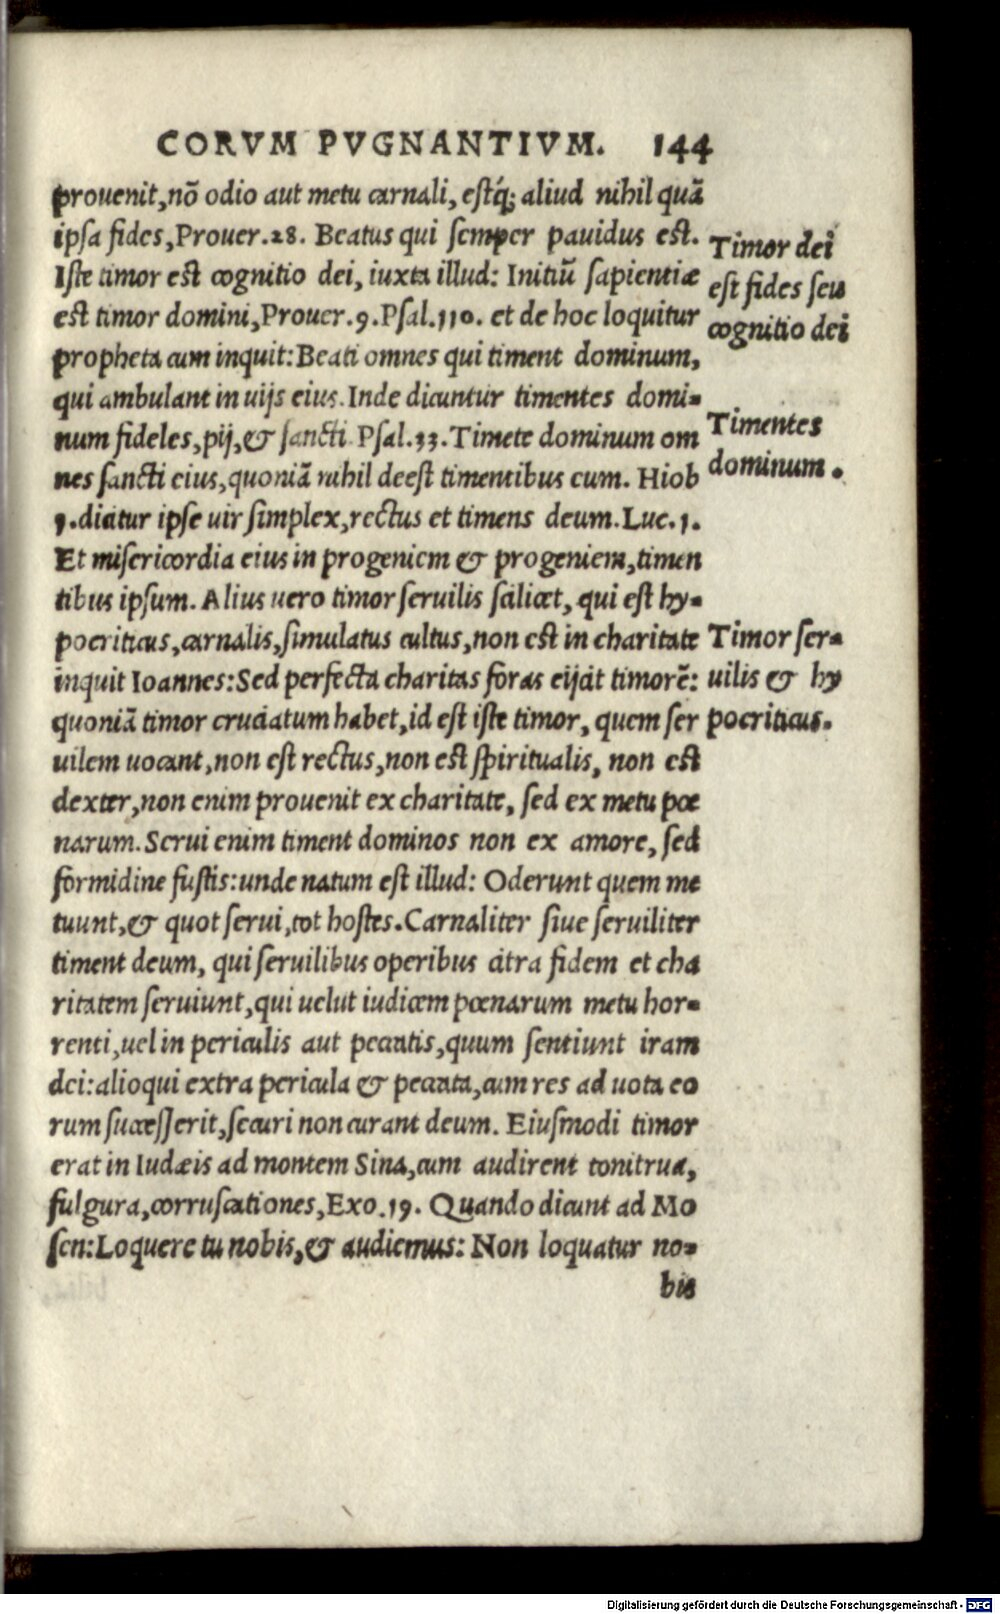 CORVM PVGNANTIVM. 144
prouenit, nõ odio aut metu carnali, estq́; aliud nihil quã
ipsa fides, Prouer. 28. Beatus qui semper pauidus est.
Iste timor est cognitio dei, iuxta illud: Initiũ sapientiæ
est timor domini, Prouer. 9. Psal. 110. et de hoc loquitur
propheta cum inquit: Beati omnes qui timent dominum,
qui ambulant in uijs eius. Inde dicuntur timentes domi=
num fideles, pij, & sancti Psal. 33. Timete dominum om
nes sancti eius, quoniã nihil deest timentibus eum. Hiob
1. dicitur ipse uir simplex, rectus et timens deum. Luc. 1.
Et misericordia eius in progeniem & progeniem, timen
tibus ipsum. Alius uero timor seruilis scilicet, qui est hy=
pocriticus, carnalis, simulatus cultus, non est in charitate
inquit Ioannes: Sed perfecta charitas foras eijcit timorē:
quoniã timor cruciatum habet, id est iste timor, quem ser
uilem uocant, non est rectus, non est spiritualis, non est
dexter, non enim prouenit ex charitate, sed ex metu poe
narum. Serui enim timent dominos non ex amore, sed
formidine fustis: unde natum est illud: Oderunt quem me
tuunt, & quot serui, tot hostes. Carnaliter siue seruiliter
timent deum, qui seruilibus operibus citra fidem et cha
ritatem seruiunt, qui uelut iudicem poenarum metu hor=
renti, uel in periculis aut peccatis, quum sentiunt iram
dei: alioqui extra pericula & peccata, cum res ad uota eo
rum successerit, securi non curant deum. Eiusmodi timor
erat in Iudæis ad montem Sina, cum audirent tonitrua,
fulgura, corruscationes, Exo. 19. Quando dicunt ad Mo
sen: Loquere tu nobis, & audiemus: Non loquatur no=
bis
Timor dei
est fides seu
cognitio dei
Timentes
dominum.
Timor ser=
uilis & hy
pocriticus.
Digitalisierung gefördert durch die Deutsche Forschungsgemeinschaft - DFG